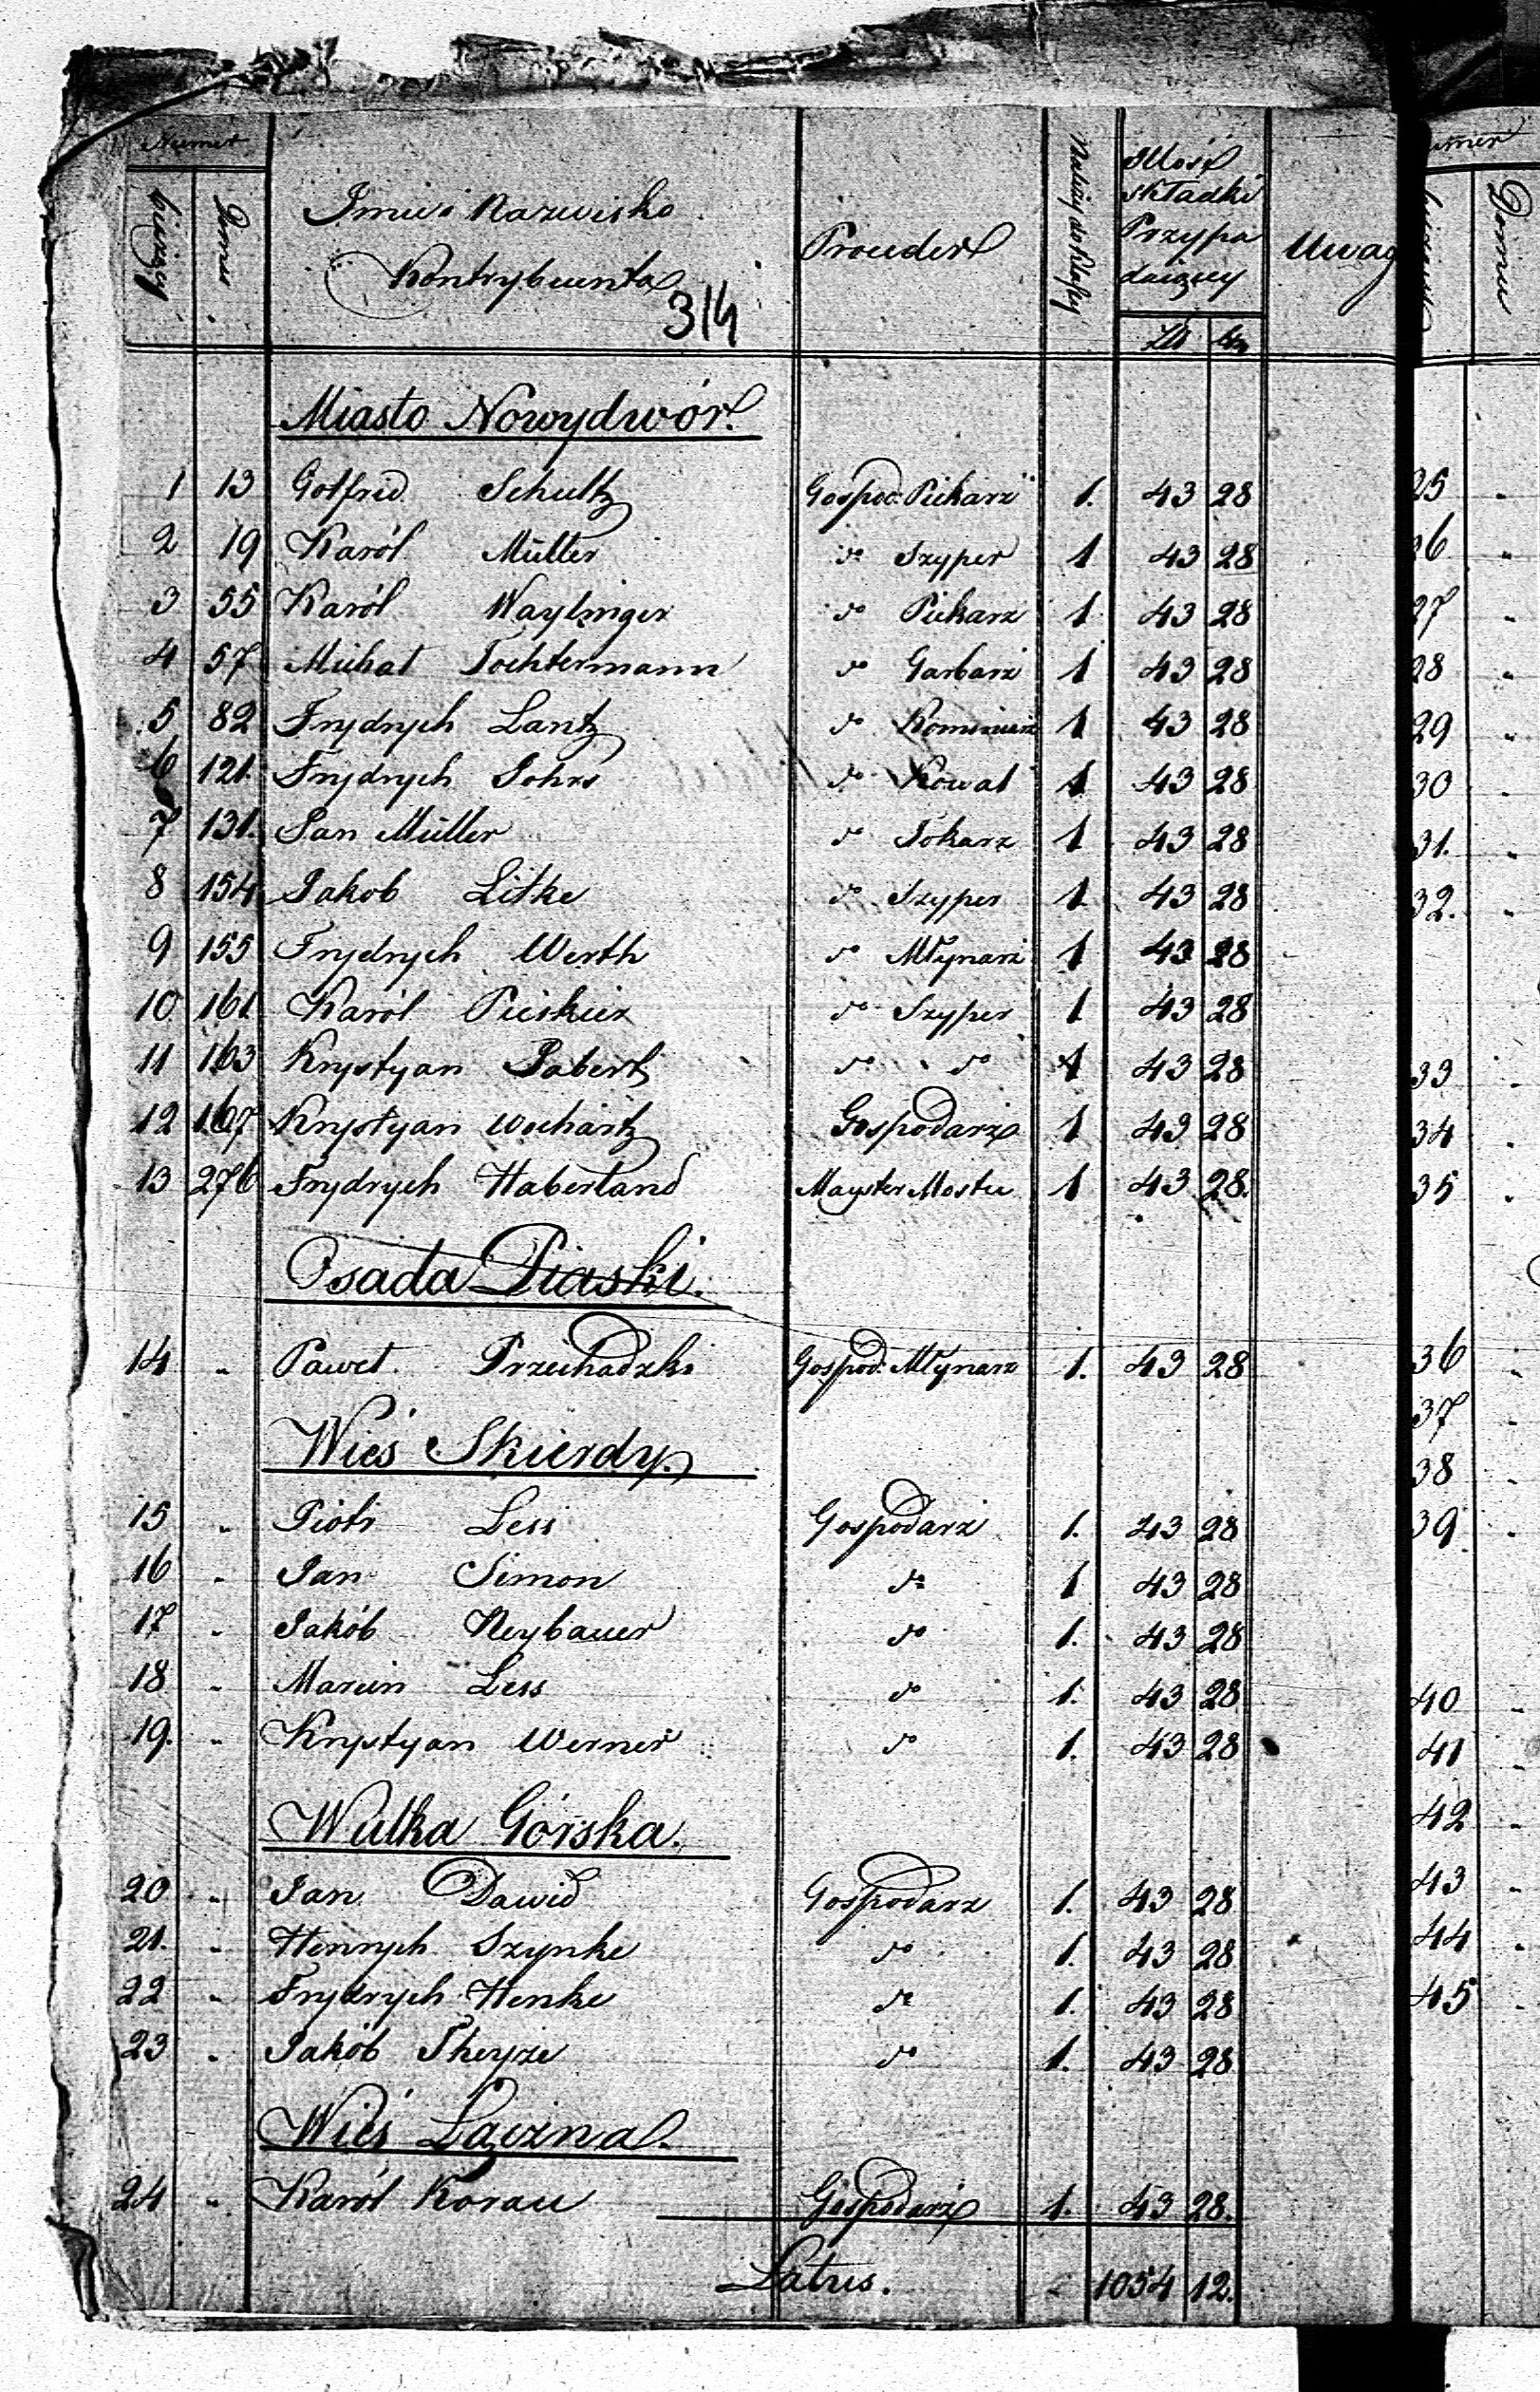 Numer
bieżący
Domu
Imie i Nazwisko
Kontrybuenta
314
Proceder
Należy do klassy
Ilość
składki
Przypa
daiącey
Zł gr
Uwag
Miasto Nowydwór.
1 13 Gotfrid Schultz Gospod: Piekarz 1. 43 28
2 19 Karól Müller do Szyper 1 43 28
3 55 Karól Waytzinger do Piekarz 1 43 28
4 57 Michał Tochtermann do Garbarz 1 43 28
5 82 Frydrych Lantz do Kominiarz 1 43 28
6 121. Frydrych Johns do Kowal 1 43 28
7 131. Jan Müller do Tokarz 1 43 28
8 154 Jakob Litke do Szyper 1 43 28
9 155 Frydrych Werth do Młynarz 1 43 28
10 161 Karól do Szyper 1 43 28
11 163 Krystyan Pabertz do do 1 43 28
12 167 Krystyan Gospodarz 1 43 28
13 276 Frydrych Haberland Mayster Mostu 1 43 28.
Osada Piaski.
14 " Paweł Przechadzki Gospod: Młynarz 1. 43 28
Wieś Skierdy.
15 " Piotr Less Gospodarz 1. 43 28
16 " Jan Simon do 1 43 28
17 " Jakób Neybauer do 1. 43 28
18 " Marcin Less do 1. 43 28
19. " Krystyan Werner do 1. 43 28
Wulka Górska.
20 " Jan Dawid Gospodarz 1. 43 28
21. " Henrych Szynke do 1. 43 28
22 " Frydrych Henke do 1. 43 28
23 " Jakób Theyze do 1. 43 28
Wieś Łaczna.
24 " Karól Korau Gospodarz 1. 43 28.
Latus. 1054 12.
umer
Domu
25 "
26 "
27 "
28 "
29 "
30 "
31. "
32. "
33 "
34 "
35 "
36 "
37 "
38 "
39 "
40 "
41 "
42 "
43 "
44 "
45 "